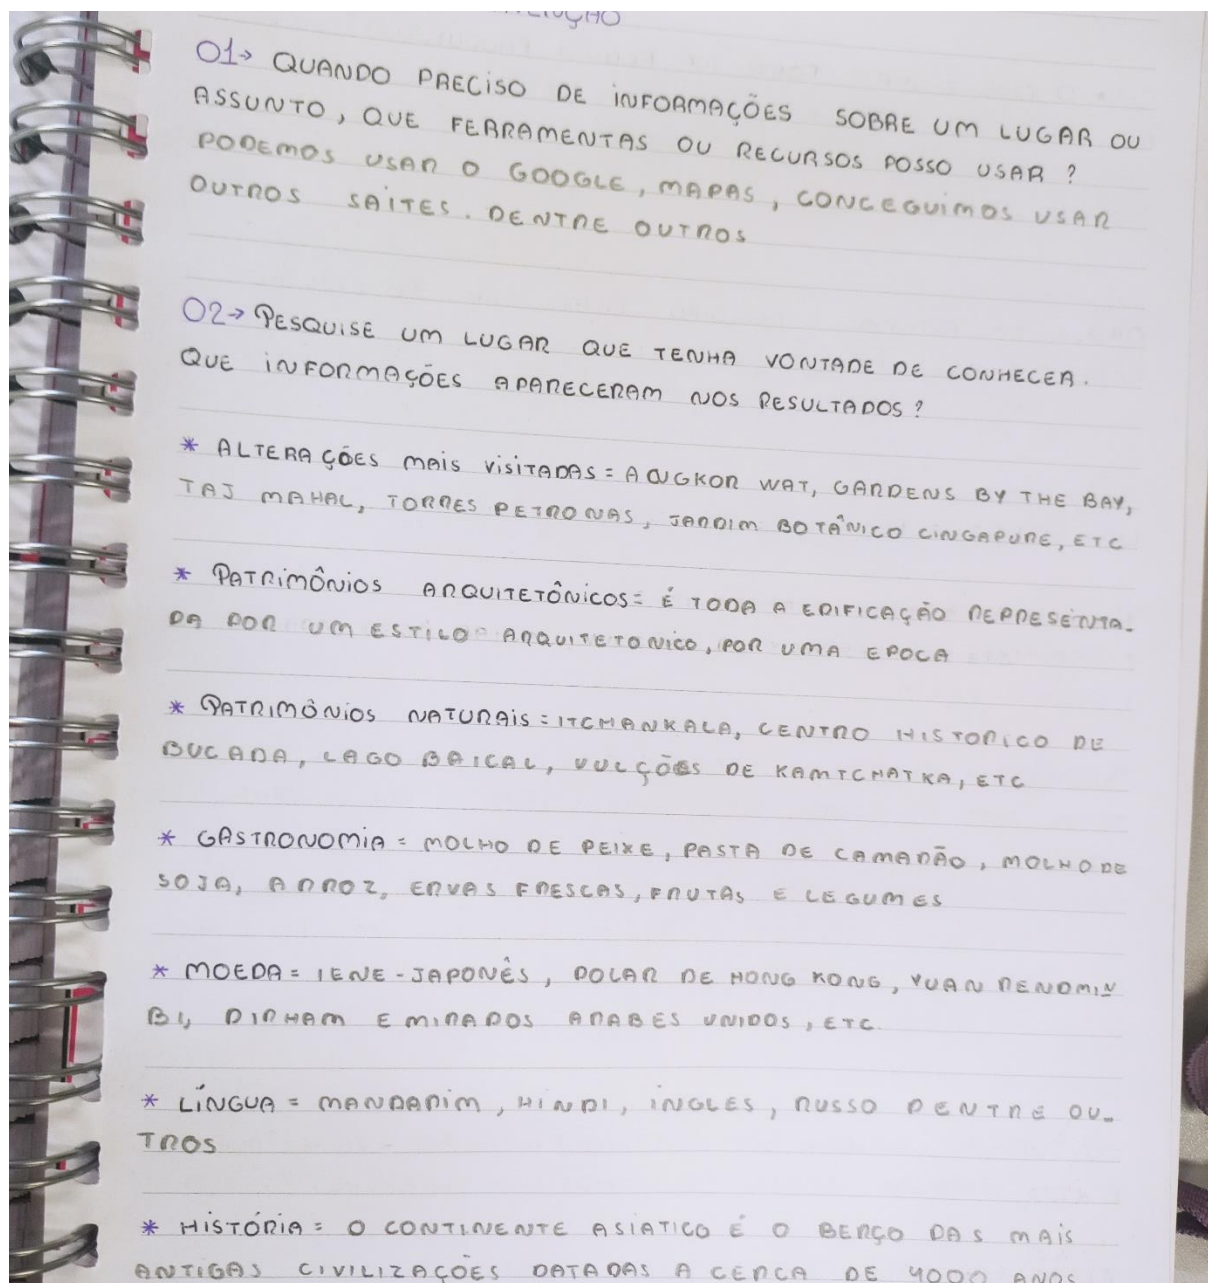 01→ QUANDO PRECISO DE INFORMAÇÕES SOBRE UM LUGAR OU
ASSUNTO, QUE FERRAMENTAS OU RECURSOS POSSO USAR?
PODEMOS USAR O GOOGLE, MAPAS, CONCEGUIMOS USAR
OUTROS SAITES. DENTRE OUTROS
02→ PESQUISE UM LUGAR QUE TENHA VONTADE DE CONHECER.
QUE INFORMAÇÕES APARECERAM NOS RESULTADOS?
* ALTERAÇÕES MAIS VISITADAS = ANGKOR WAT, GARDENS BY THE BAY,
TAJ MAHAL, TORRES PETRONAS, JARDIM BOTÂNICO CINGAPURE, ETC
* PATRIMÔNIOS ARQUITETÔNICOS = É TODA A EDIFICAÇÃO REPRESENTA-
DA POR UM ESTILO ARQUITETONICO, POR UMA EPOCA
* PATRIMÔNIOS NATURAIS = ITCHANKALA, CENTRO HISTORICO DE
BUCARA, LAGO BAICAL, VULÇÕES DE KAMTCHATKA, ETC
* GASTRONOMIA = MOLHO DE PEIXE, PASTA DE CAMARÃO, MOLHO DE
SOJA, ARROZ, ERVAS FRESCAS, FRUTAS E LEGUMES
* MOEDA = IENE-JAPONÊS, DOLAR DE HONG KONG, YUAN RENOMIN
BI, DIRHAM EMIRADOS ARABES UNIDOS, ETC.
* LÍNGUA = MANDARIM, HINDI, INGLES, RUSSO DENTRE OU-
TROS
* HISTÓRIA = O CONTINENTE ASIATICO É O BERÇO DAS MAIS
ANTIGAS CIVILIZAÇÕES DATADAS A CERCA DE 4000 ANOS